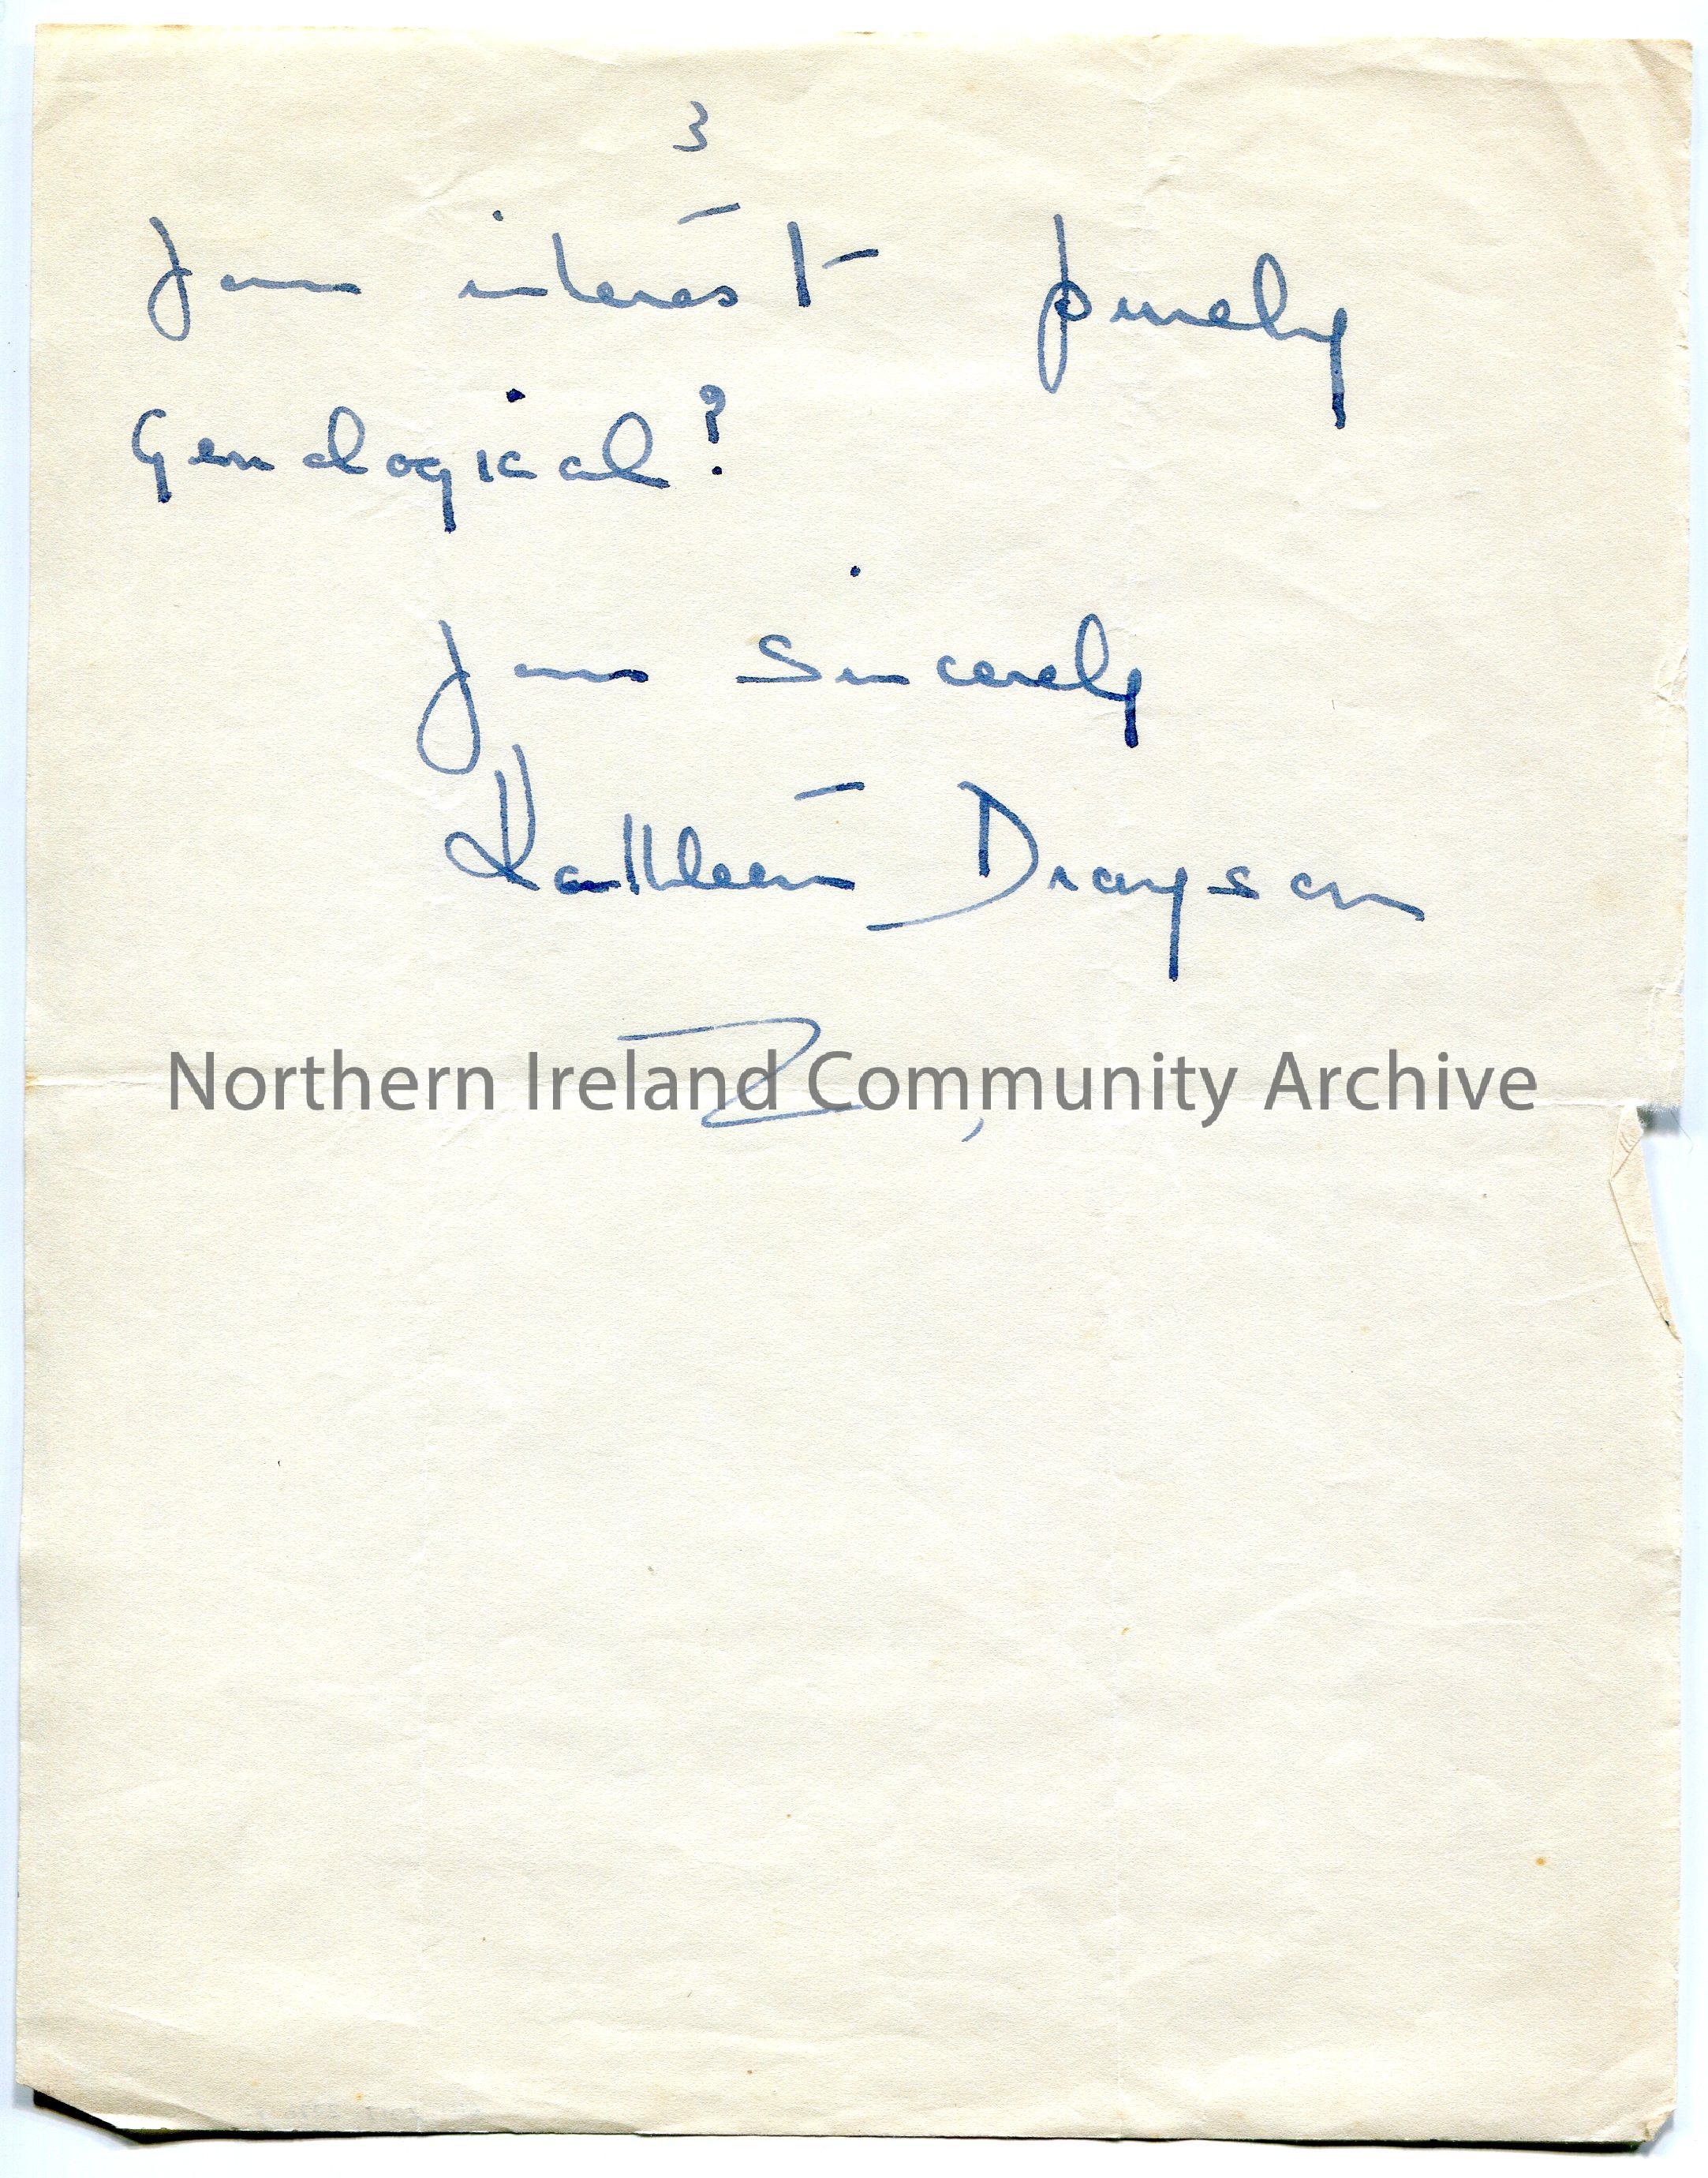 3
Your interest purely
Genelogical?
Yours Sincerely
Kathleen Drayson
Northern Ireland Community Archive